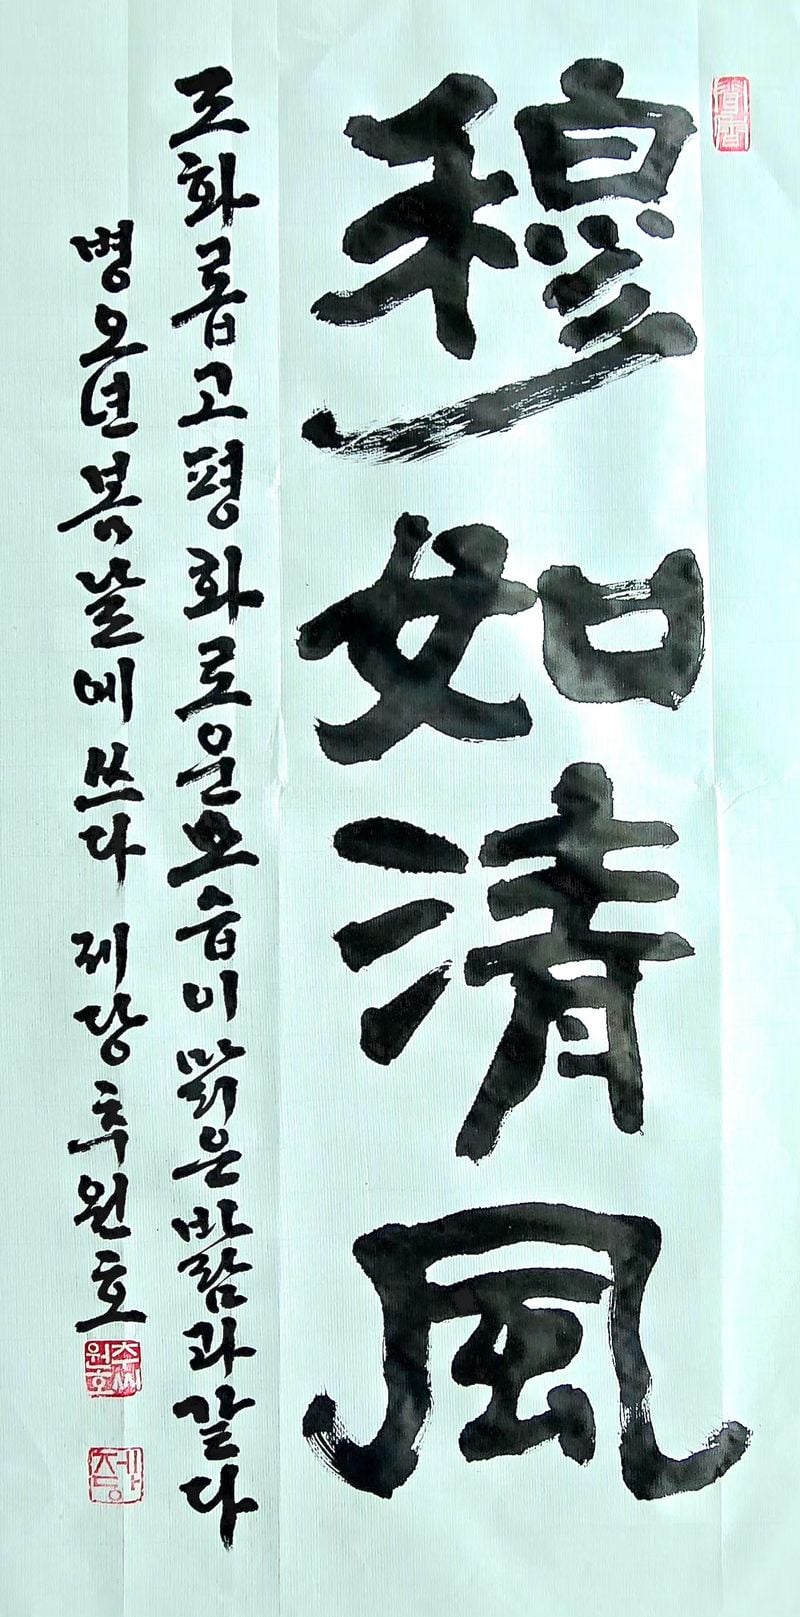 穆如清風
조화롭고 평화로운 모습이 맑은 바람과 같다
병오년 봄날에 쓰다 제당 추원호
추씨원호
제당